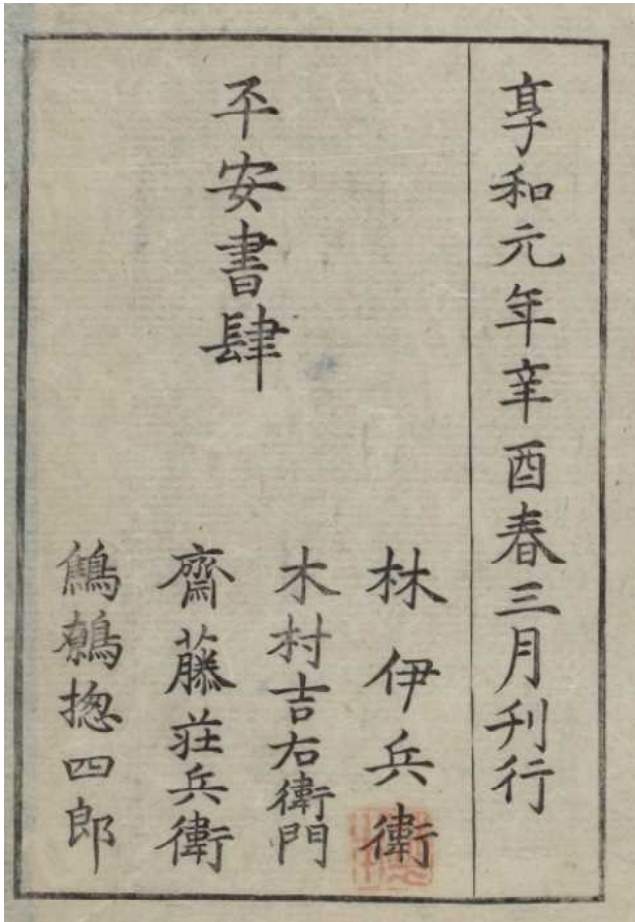 享和元年辛酉春三月刊行
平安書肆
林伊兵衛
木村吉右衛門
齋藤荘兵衛
鷦鷯揔四郎